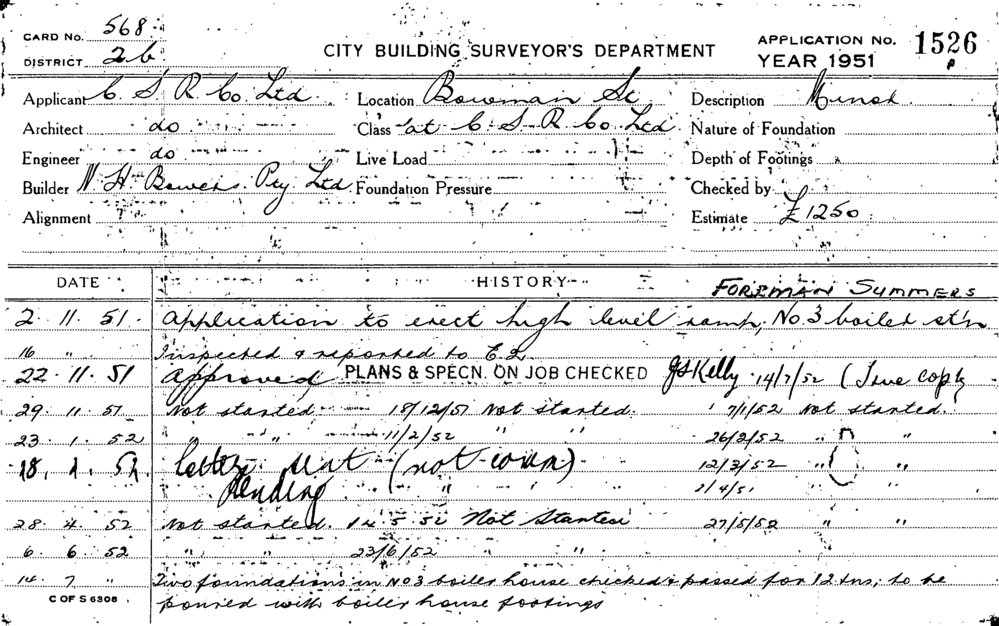 CARD No. 568
DISTRICT 2b
CITY BUILDING SURVEYOR'S DEPARTMENT
APPLICATION No. 1526
YEAR 1951
Applicant C. S. R. Co. Ltd Location Bowman St Description Minor
Architect do Class at C. S. R. Co. Ltd Nature of Foundation
Engineer do Live Load Depth of Footings
Builder N. H. Bowers. Pty Ltd Foundation Pressure Checked by
Alignment Estimate £1250
DATE HISTORY FOREMAN SUMMERS
2. 11. 51 Application to erect high level ramp, No. 3 boiler stn
16 " Inspected & reported to
22. 11. 51 Approved PLANS & SPECN. ON JOB CHECKED JS Kelly 14/7/52 (True copy
29. 11. 51 Not started 18/12/51 Not started. 7/1/52 Not started.
23. 1. 52 " " 11/2/52 " " 26/2/52 " "
18. 2. 52. letter sent 12/3/52 " "
Pending " " 2/4/51 " "
28. 4. 52 Not started. 14. 5. 52 Not Started 27/5/52 " "
6. 6. 52 " " 23/6/52 " "
14. 7 " Two foundations in No 3 boiler house checked & passed for 12 tns; to be
C OF S 6308 poured with boiler house footings